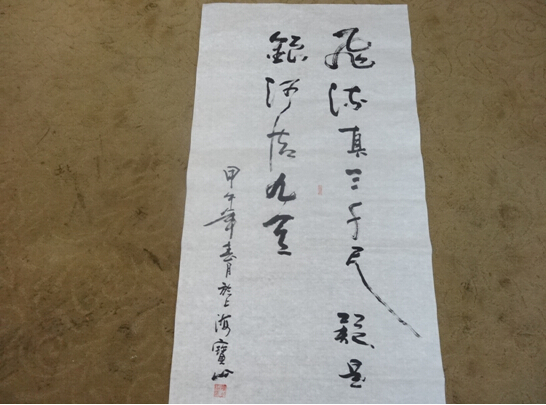 飛流真三千尺 疑是
銀河落九天
甲午年月於上海寶山